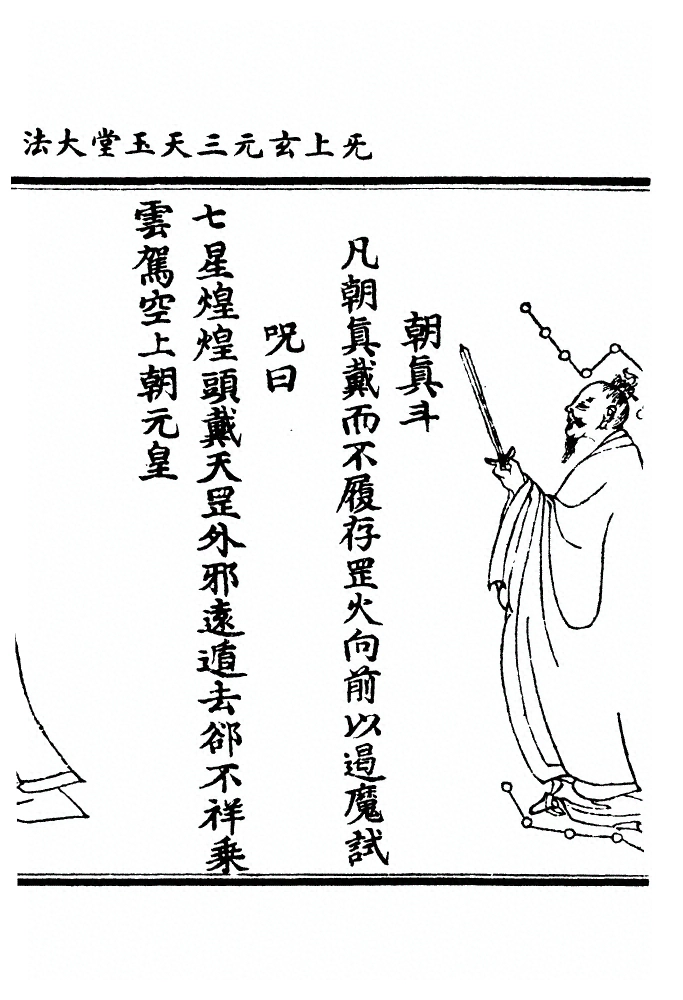 旡上玄元三天玉堂大法
朝眞斗
凡朝眞戴而不履存罡火向前以遏魔試
呪曰
七星煌煌頭戴天罡外邪遠遁去郤不祥乗
雲駕空上朝元皇